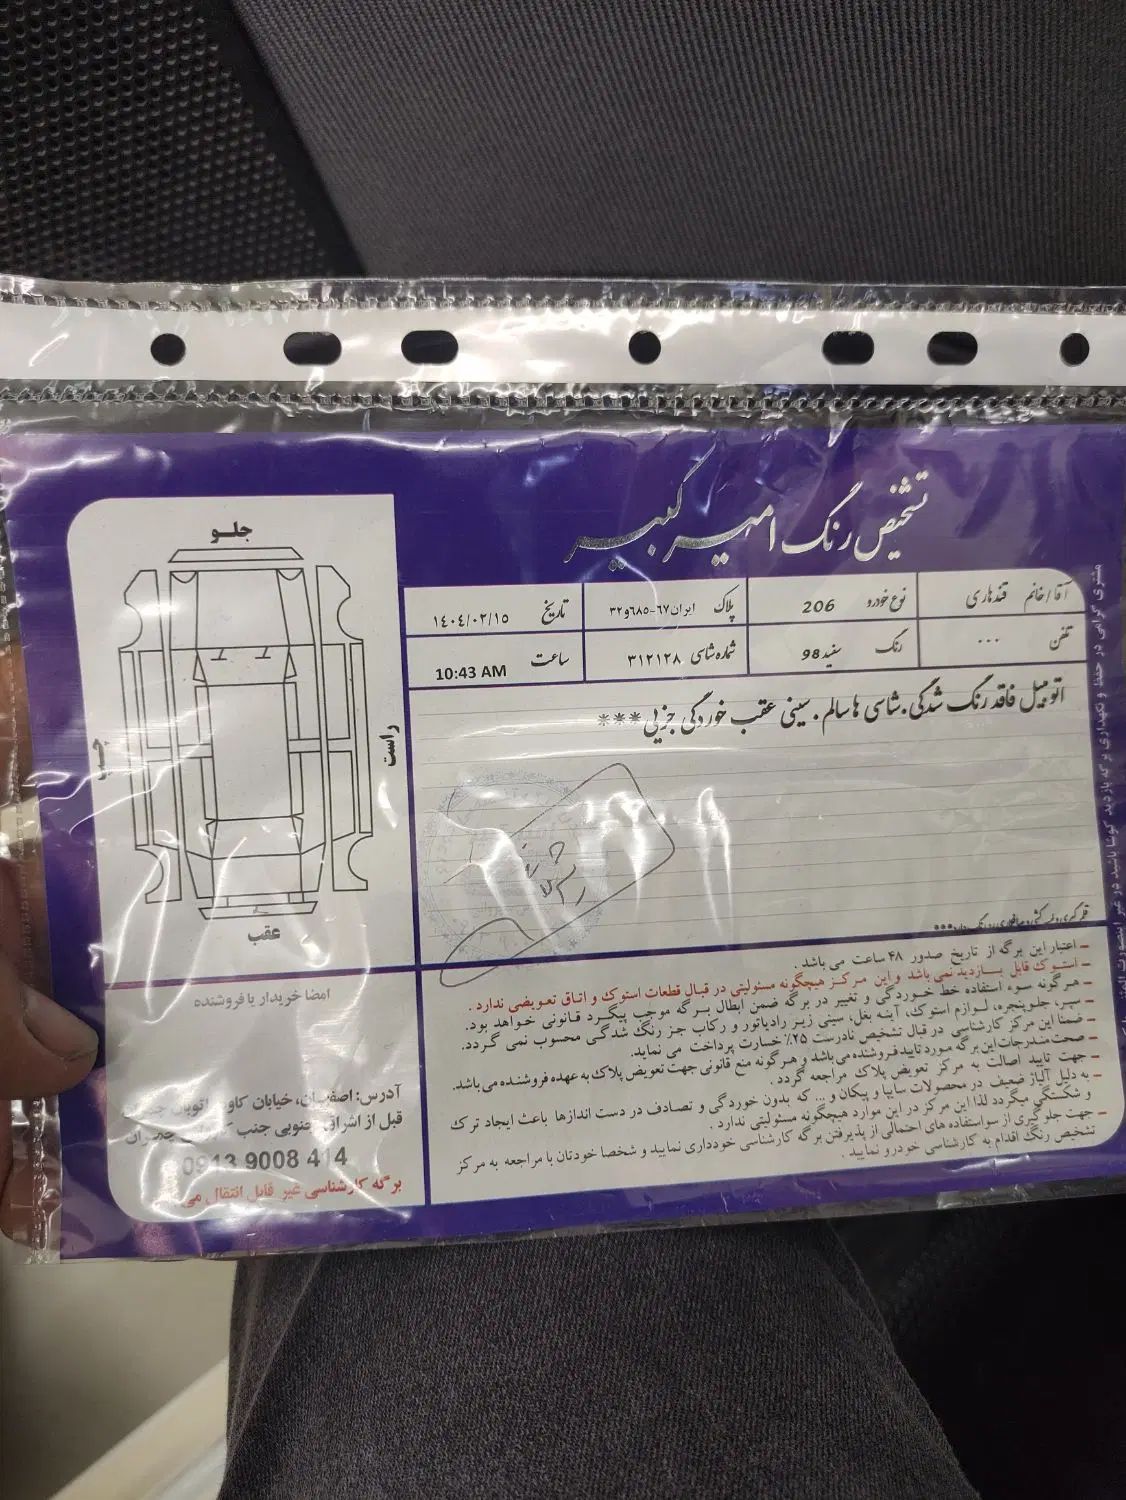 تشخیص رنگ امیرکبیر
آقا/خانم قندهاری
نوع خودرو 206
پلاک ایران ۶۷-۶۸۵و۳۲
تاریخ ۱۴۰۴/۰۲/۱۵
تلفن ...
رنگ سفید 98
شماره شاسی ۳۱۲۱۲۸
ساعت 10:43 AM
اتومبیل فاقد رنگ شدگی.شاسی ها سالم.سینی عقب خوردگی جزیی***
جلو
راست
چپ
عقب
امضا خریدار یا فروشنده
آدرس: اصفهان، خیابان کاوه،
قبل از اشراق جنوبی جنب
0913 9008 414
برگه کارشناسی غیر قابل انتقال می
– اعتبار این برگه از تاریخ صدور ۴۸ ساعت می باشد .
– استوک قابل بازدید نمی باشد و این مرکز هیچگونه مسئولیتی در قبال قطعات استوک و اتاق تعویضی ندارد .
– هرگونه سوء استفاده خط خوردگی و تغییر در برگه ضمن ابطال برگه موجب پیگرد قانونی خواهد بود.
– سپر، جلوپنجره، لوازم استوک، آینه بغل، سینی زیر رادیاتور و رکاب جز رنگ شدگی محسوب نمی گردد.
– ضمنا این مرکز کارشناسی در قبال تشخیص نادرست ۲۵٪ خسارت پرداخت می نماید.
– صحت مندرجات این برگه مورد تایید فروشنده می باشد و هرگونه منع قانونی جهت تعویض پلاک به عهده فروشنده می باشد.
– جهت تایید اصالت به مرکز تعویض پلاک مراجعه گردد .
– به دلیل آلیاژ ضعیف در محصولات سایپا و پیکان و ... که بدون خوردگی و تصادف در دست اندازها باعث ایجاد ترک
و شکستگی میگردد لذا این مرکز در این موارد هیچگونه مسئولیتی ندارد .
– جهت جلوگیری از سواستفاده های احتمالی از پذیرفتن برگه کارشناسی خودداری نمایید و شخصا خودتان با مراجعه به مرکز
تشخیص رنگ اقدام به کارشناسی خودرو نمایید .
مشتری گرامی در حفظ و نگهداری برگه بازدید کوشا باشید در غیر اینصورت